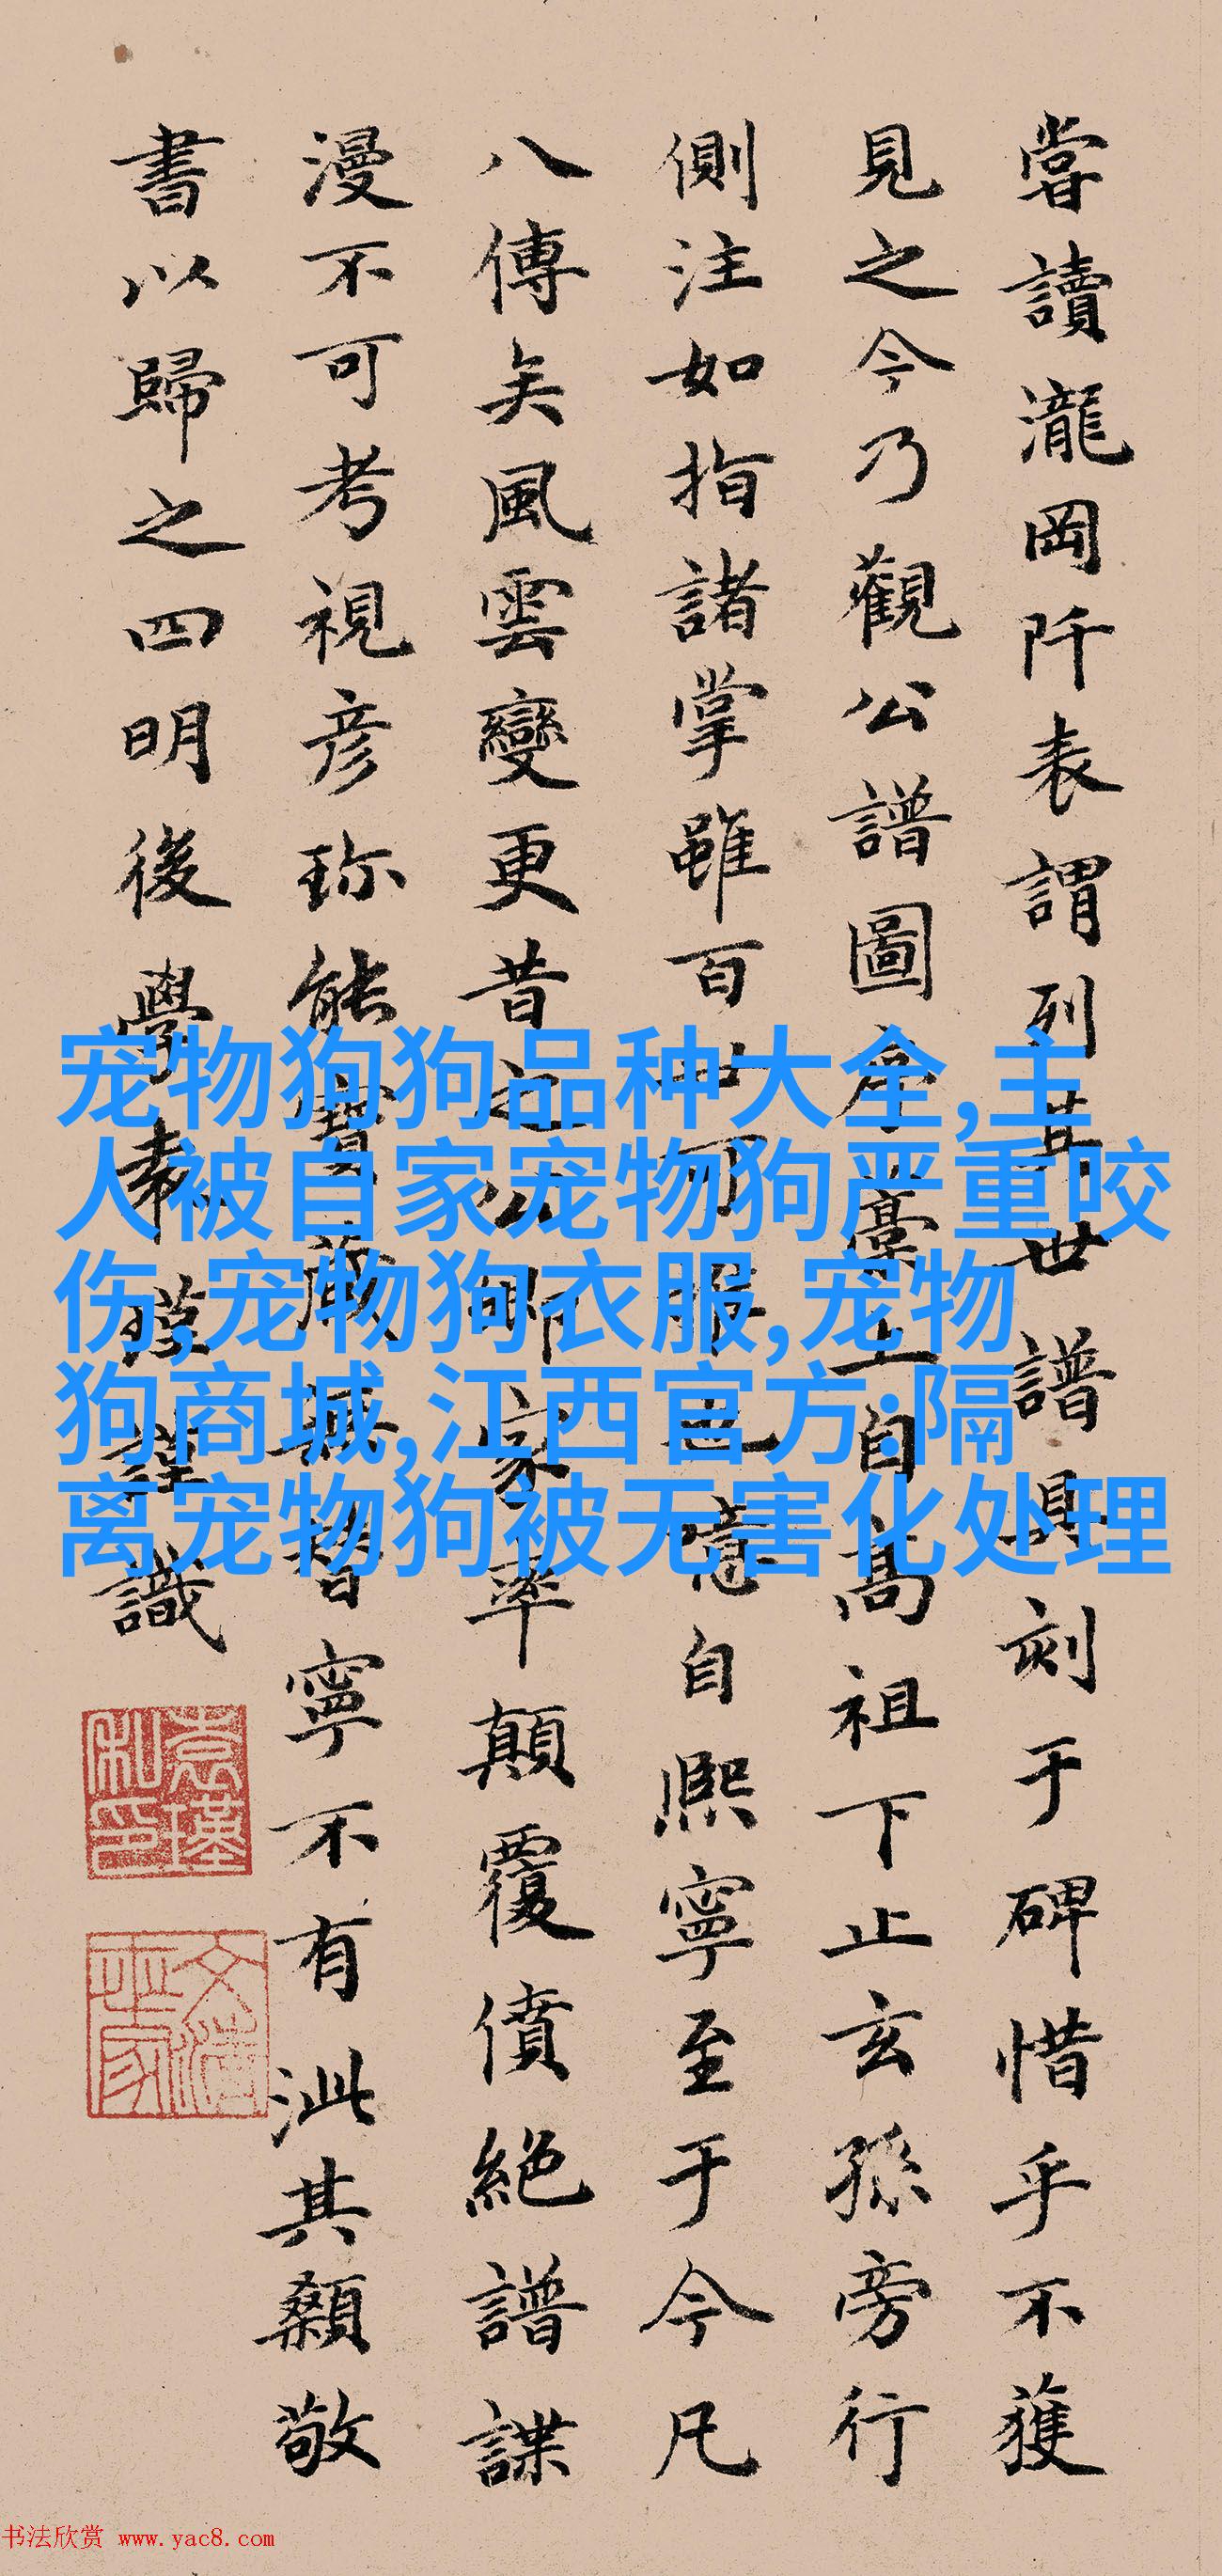 嘗讀瀧岡阡表謂列其世譜具刻于碑惜乎不獲
見之今乃觀公譜圖序藁上自高祖下止玄孫旁行
側注如指諸掌雖百世可服也噫自熙寧至于今凡
八傳矣風雲變更昔之公卿家率顛覆僨絕譜諜
漫不可考視彦珍能寶藏無替寧不有泚其顙敬
書以歸之四明後學袁瑾謹識
宠物狗狗品种大全,主
人被自家宠物狗严重咬
伤,宠物狗衣服,宠物
狗商城,江西官方:隔
离宠物狗被无害化处理
袁瑾私印
书法欣赏 www.yac8.com